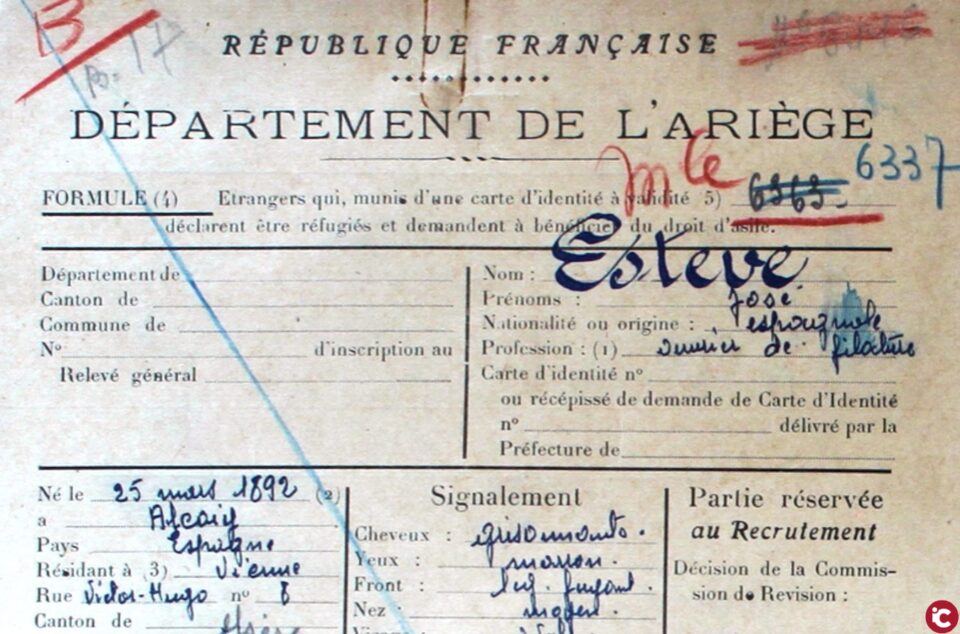 B
17
RÉPUBLIQUE FRANÇAISE
DÉPARTEMENT DE L'ARIÈGE
Mle 6363 6337
FORMULE (4) Etrangers qui, munis d'une carte d'identité à validité 5)
déclarent être réfugiés et demandent à bénéficier du droit d'asile.
Département de
Canton de
Commune de
No d'inscription au
Relevé général
Nom : Esteve
Prénoms : José
Nationalité ou origine : espagnole
Profession : (1) ouvrier de filature
Carte d'identité no
ou récépissé de demande de Carte d'Identité
no délivré par la
Préfecture de
Né le 25 mars 1892 (2)
a Alcoiy
Pays Espagne
Résidant à 3) Vienne
Rue Victor-Hugo no 8
Canton de Isère
Signalement
Cheveux : grisonnants.
Yeux : marron.
Front : fuyant.
Nez moyen.
Partie réservée
au Recrutement
Décision de la Commis-
sion de Revision :
iC